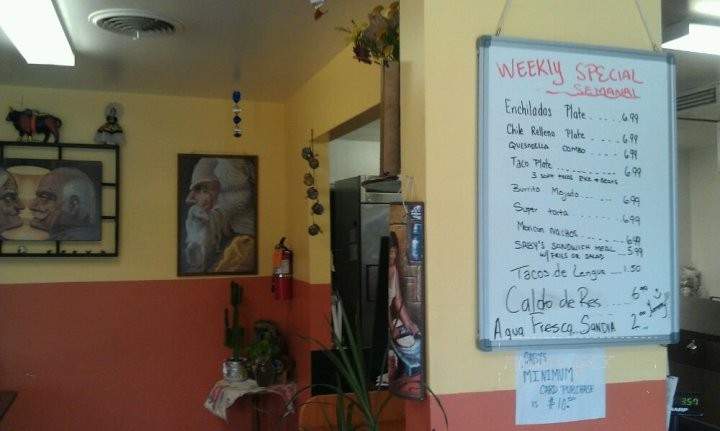 WEEKLY SPECIAL
SEMANAL
Enchiladas Plate ..... 6.99
Chile Relleno Plate .... 6.99
QUESADILLA COMBO ... 6.99
Taco Plate ........ 6.99
3 SOFT TACOS RICE & BEANS
Burrito Mojado .... 6.99
Super torta ....... 6.99
Mexican NACHOS ........ 6.99
SABY'S SANDWICH MEAL ... 5.99
W/ FRIES OR SALAD
Tacos de Lengua ... 1.50
Caldo de Res ..... 6.00
Yummy
Agua Fresca SANDIA 2.00
MINIMUM
CARD PURCHASE
IS $10.00